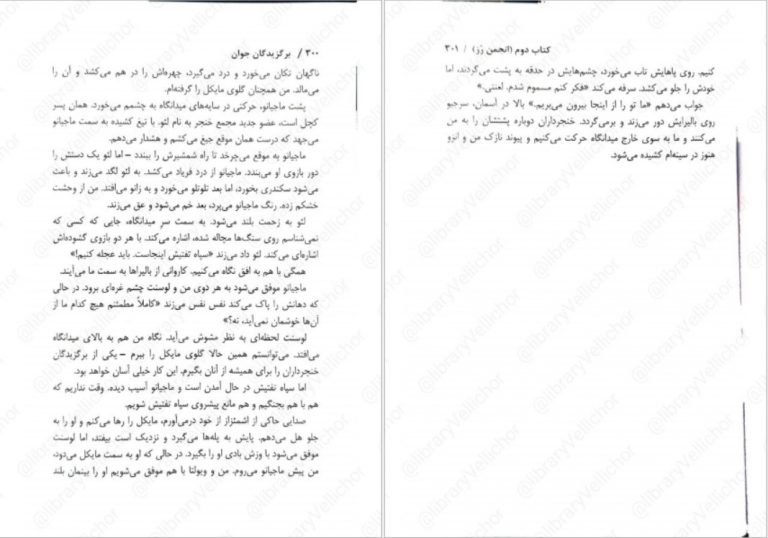 ۳۰۰ / برگزیدگان جوان
ناگهان تکان می‌خورد و درد می‌گیرد، چهره‌اش را در هم می‌کشد و آن را
می‌مالد. من همچنان گلوی مایکل را گرفته‌ام.
پشت ماجیانو، حرکتی در سایه‌های میدانگاه به چشمم می‌خورد. همان پسر
کچل است، عضو جدید مجمع خنجر به نام لئو. با تیغ کشیده به سمت ماجیانو
می‌جهد که درست همان موقع جیغ می‌کشم و هشدار می‌دهم.
ماجیانو به موقع می‌چرخد تا راه شمشیرش را ببندد – اما لئو یک دستش را
دور بازوی او می‌بندد. ماجیانو از درد فریاد می‌کشد. به لئو لگد می‌زند و باعث
می‌شود سکندری بخورد، اما بعد تلوتلو می‌خورد و به زانو می‌افتد. من از وحشت
خشکم زده. رنگ ماجیانو می‌پرد، بعد خم می‌شود و عق می‌زند.
لئو به زحمت بلند می‌شود. به سمت سر میدانگاه، جایی که کسی که
نمی‌شناسم روی سنگ‌ها مچاله شده، اشاره می‌کند. با هر دو بازوی گشوده‌اش
اشاره‌ای می‌کند. لئو داد می‌زند «سپاه تفتیش اینجاست. باید عجله کنیم!»
همگی با هم به افق نگاه می‌کنیم. کاروانی از بالیراها به سمت ما می‌آیند.
ماجیانو موفق می‌شود به هر دوی من و لوسنت چشم غره‌ای برود. در حالی
که دهانش را پاک می‌کند نفس نفس می‌زند «کاملاً مطمئنم هیچ کدام ما از
آن‌ها خوشمان نمی‌آید، نه؟»
لوسنت لحظه‌ای به نظر مشوش می‌آید. نگاه من هم به بالای میدانگاه
می‌افتد. می‌توانستم همین حالا گلوی مایکل را ببرم – یکی از برگزیدگان
خنجرداران را برای همیشه از آنان بگیرم. این کار خیلی آسان خواهد بود.
اما سپاه تفتیش در حال آمدن است و ماجیانو آسیب دیده. وقت نداریم که
هم با هم بجنگیم و هم مانع پیشروی سپاه تفتیش شویم.
صدایی حاکی از اشمئزاز از خود درمی‌آورم، مایکل را رها می‌کنم و او را به
جلو هل می‌دهم. پایش به پله‌ها می‌گیرد و نزدیک است بیفتد، اما لوسنت
موفق می‌شود با وزش بادی او را بگیرد. در حالی که او به سمت مایکل می‌دود،
من پیش ماجیانو می‌روم. من و ویولتا با هم موفق می‌شویم او را بینمان بلند
کتاب دوم (انجمن رُز) / ۳۰۱
کنیم. روی پاهایش تاب می‌خورد، چشم‌هایش در حدقه به پشت می‌گردند، اما
خودش را جلو می‌کشد. سرفه می‌کند «فکر کنم مسموم شدم. لعنتی.»
جواب می‌دهم «ما تو را از اینجا بیرون می‌بریم.» بالا در آسمان، سرجیو
روی بالیرایش دور می‌زند و برمی‌گردد. خنجرداران دوباره پشتشان را به من
می‌کنند و ما به سوی خارج میدانگاه حرکت می‌کنیم و پیوند نازک من و انزو
هنوز در سینه‌ام کشیده می‌شود.
@libraryVellichor